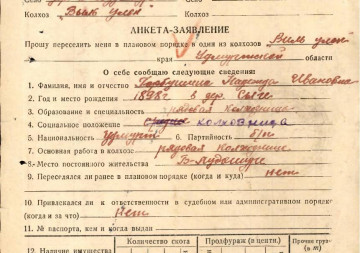 Колхоз "Виль улон"
АНКЕТА-ЗАЯВЛЕНИЕ
Прошу переселить меня в плановом порядке в один из колхозов Виль улон
края Удмуртской области
О себе сообщаю следующие сведения:
1. Фамилия, имя и отчество Надежда Ивановна
2. Год и место рождения 1898 г. в дер.
3. Образование и специальность рядовая колхозница
4. Социальное положение колхозница
5. Национальность Удмурт 6. Партийность б/п
7. Основная работа в колхозе: рядовая колхозница
8. Место постоянного жительства
9. Переселялся ли ранее в плановом порядке (когда и куда) нет
10. Привлекался ли к ответственности в судебном или административном порядке
(когда и за что) Нет
11. № паспорта, кем и когда выдан
Количество скота Продфураж (в центн.) Прочие груз
12. Наличие имущества (в т)